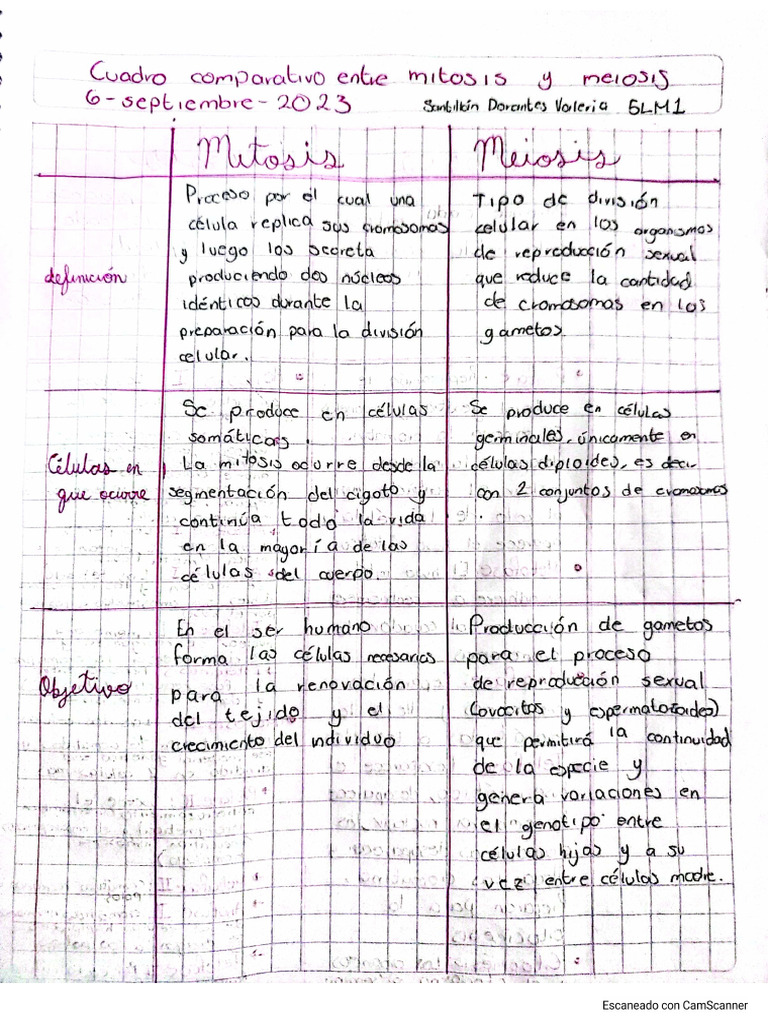 Cuadro comparativo entre mitosis y meiosis
6-septiembre-2023 Santillán Dorantes Valeria 5LM1
Mitosis
Meiosis
definición
Proceso por el cual una
célula replica sus cromosomas
y luego los secreta
produciendo dos núcleos
idénticos durante la
preparación para la división
celular.
Tipo de división
celular en los organismos
de reproducción sexual
que reduce la cantidad
de cromosomas en los
gametos
Células en
que ocurre
Se produce en células
somáticas.
La mitosis ocurre desde la
segmentación del cigoto y
continúa todo la vida
en la mayoría de las
células del cuerpo.
Se produce en células
germinales, únicamente en
células diploides, es decir
con 2 conjuntos de cromosomas
.
Objetivo
En el ser humano
forma las células necesarias
para la renovación
del tejido y el
crecimiento del individuo
Producción de gametos
para el proceso
de reproducción sexual
(ovocitos y espermatozoides)
que permitirá la continuidad
de la especie y
genera variaciones en
el genotipo entre
células hijas y a su
vez entre células madre.
Escaneado con CamScanner